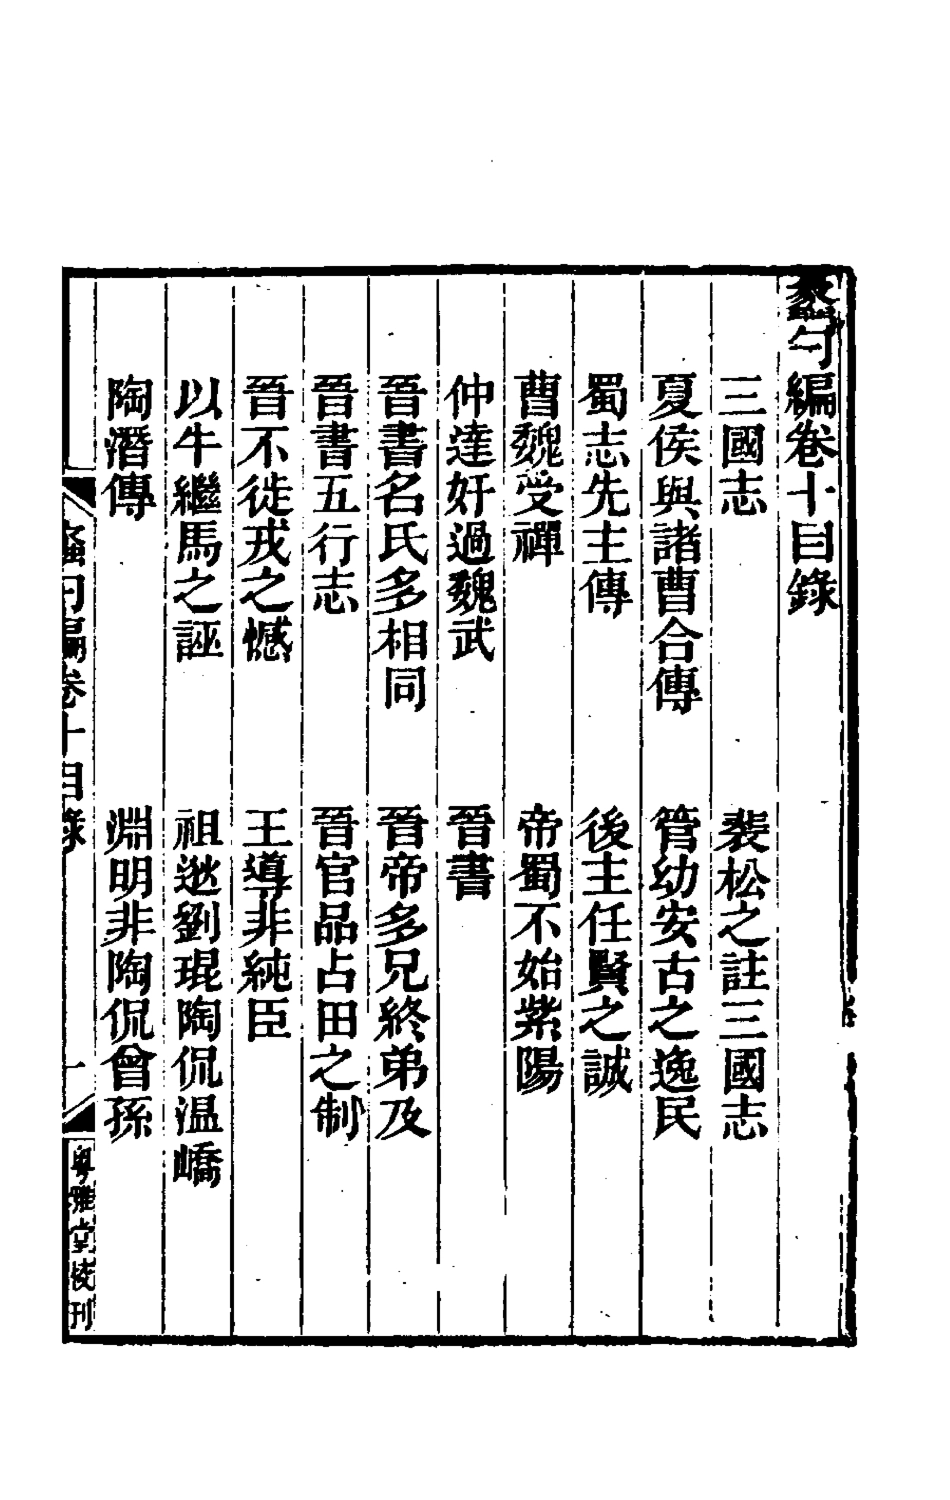 蠡勺編卷十目錄
三國志　裴松之註三國志
夏侯與諸曹合傳　管幼安古之逸民
蜀志先主傳　後主任賢之誠
曹魏受禪　帝蜀不始紫陽
仲達奸過魏武　晉書
晉書名氏多相同　晉帝多兄終弟及
晉書五行志　晉官品占田之制
晉不徙戎之憾　王導非純臣
以牛繼馬之誣　祖逖劉琨陶侃温嶠
陶潛傳　淵明非陶侃曾孫
蠡勺編卷十目錄　一　粵雅堂校刊